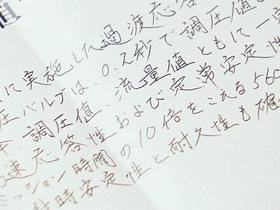 値
に実施した過渡応答
圧バルブは、0.2秒で調圧値
調圧値、流量値ともに一
速応答性および定常安定性
ミッション時間の10倍をこえる560
時安定性と耐久性も確